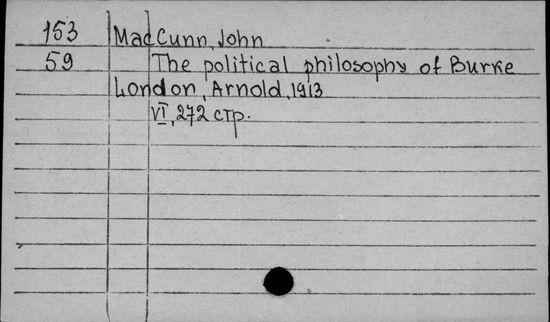 153 MacCunn, John
59 The political philosophy of Burke
London, Arnold, 1913
VI, 272 стр.